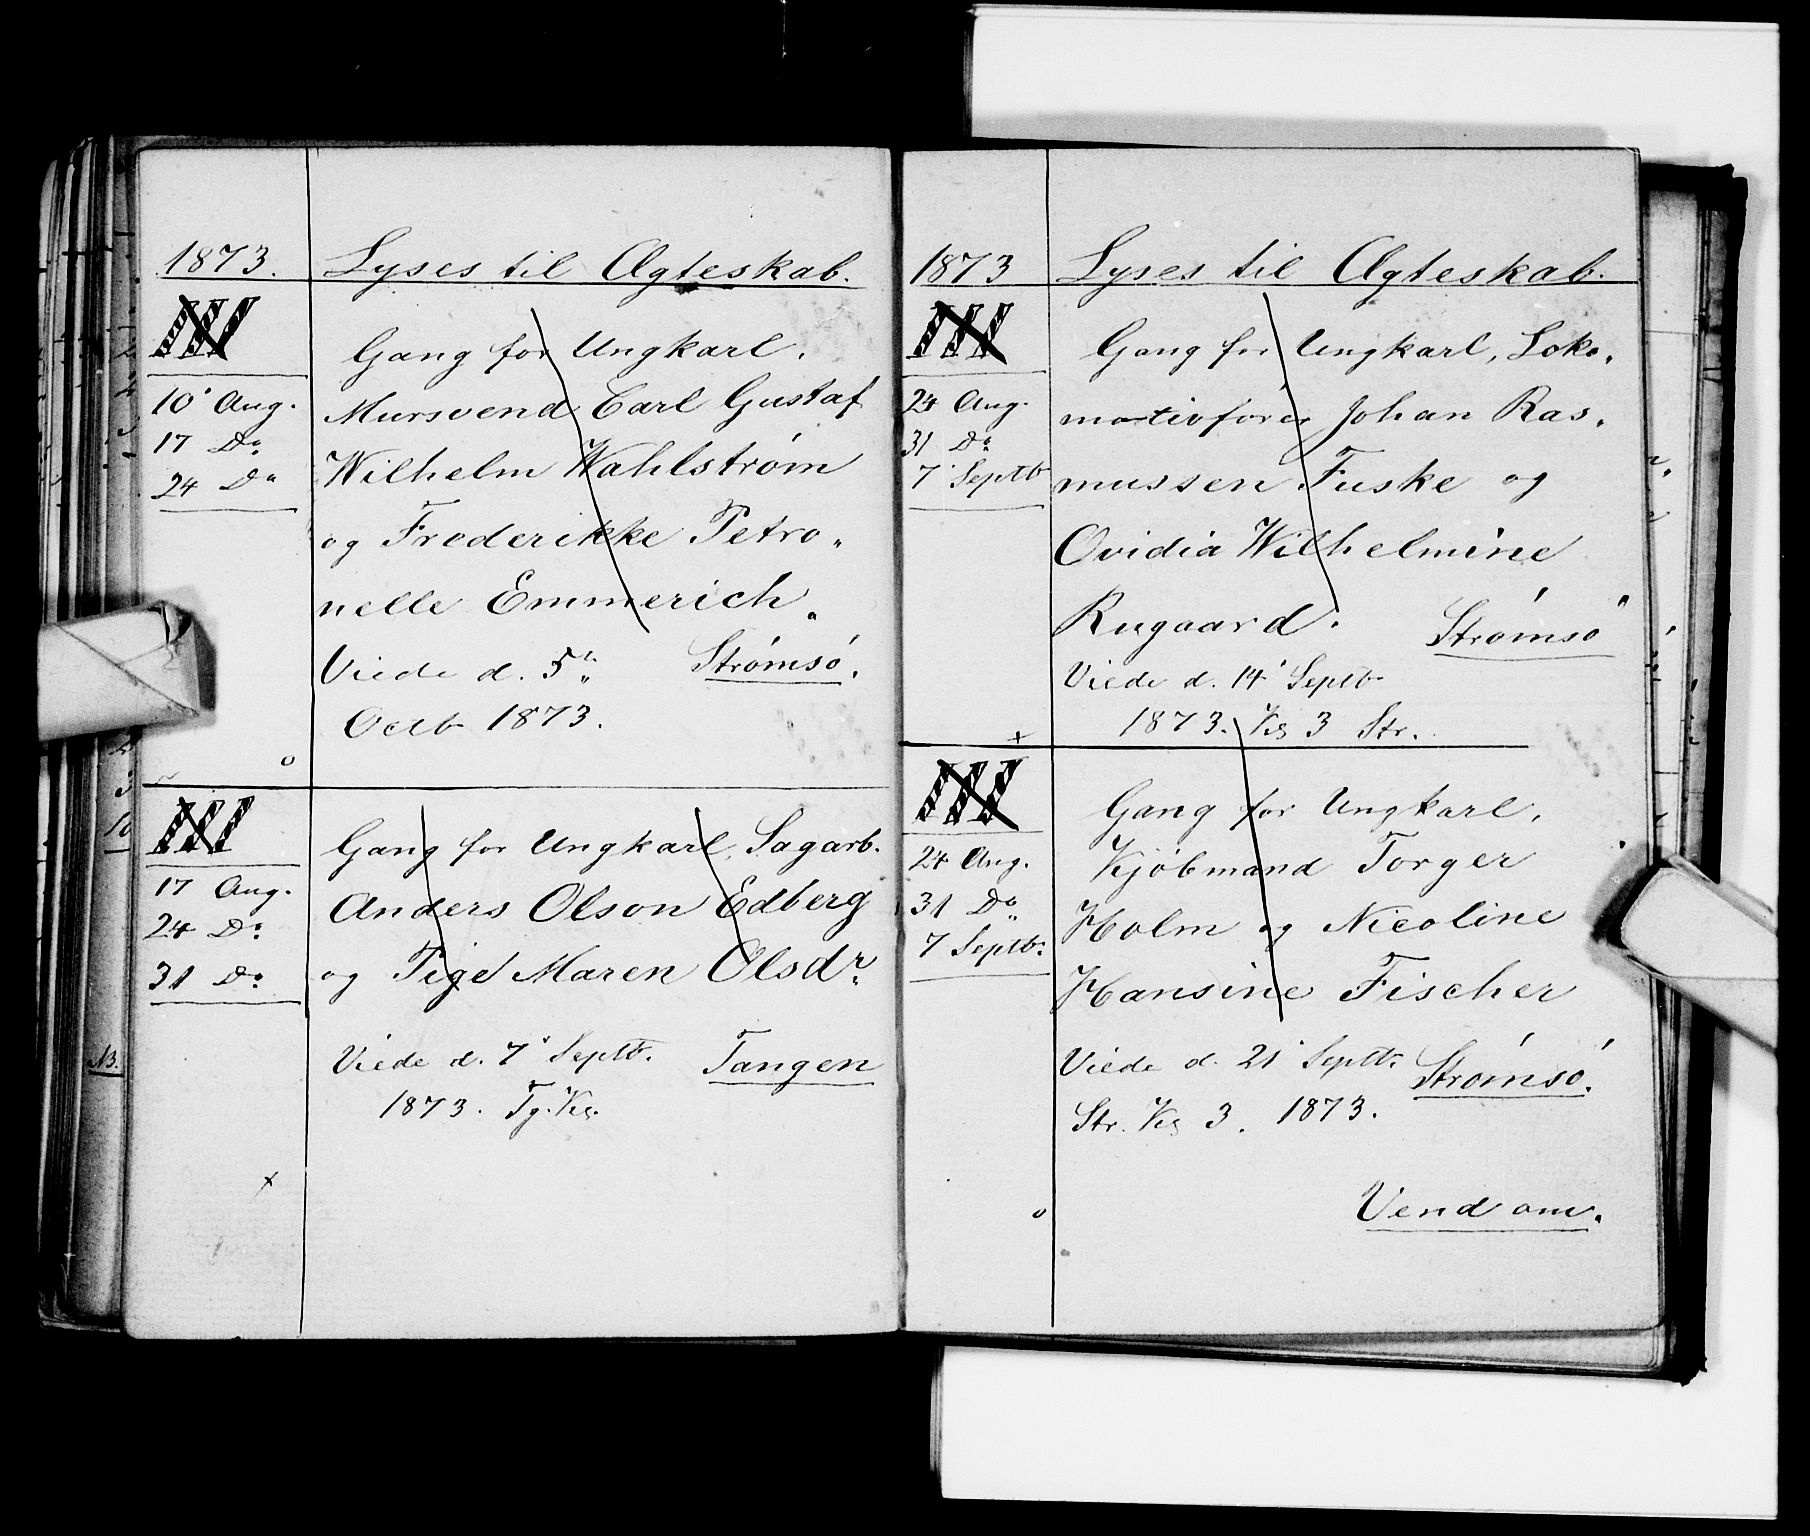 1873. Lyses til Ægteskab.
III Gang for Ungkarl,
10' Aug. Mursvend Carl Gustaf
17 Do. Wilhelm Wahlstrøm
24 Do og Frederikke Petro„
nelle Emmerich„
Viede d. 5te Strømsö.
Octb 1873.
o
III Gang for Ungkarl, Sagarb.
17 Aug. Anders Olson Edberg
24 Do. og Pige Maren Olsdr.
31 Do.
Viede d. 7' Septb. Tangen
1873. Tg. Kk.
x
1873 Lyses til Ægteskab.
III Gang for Ungkarl, Loko„
24 Aug. motivfører Johan Ras„
31 Do. mussen Fuske og
7' Septb Ovidia Wilhelmine
Rugaard. Strømsö
Viede d. 14' Septb
1873. Kk 3 Str.
x
III Gang for Ungkarl,
24 Aug. Kjöbmand Torger
31 Do. Holm og Nicoline
7 Septb. Hansine Fischer
Viede d. 21' Septb. Strømsö.
Str. Kk 3. 1873.
Vend om.
o
NB.